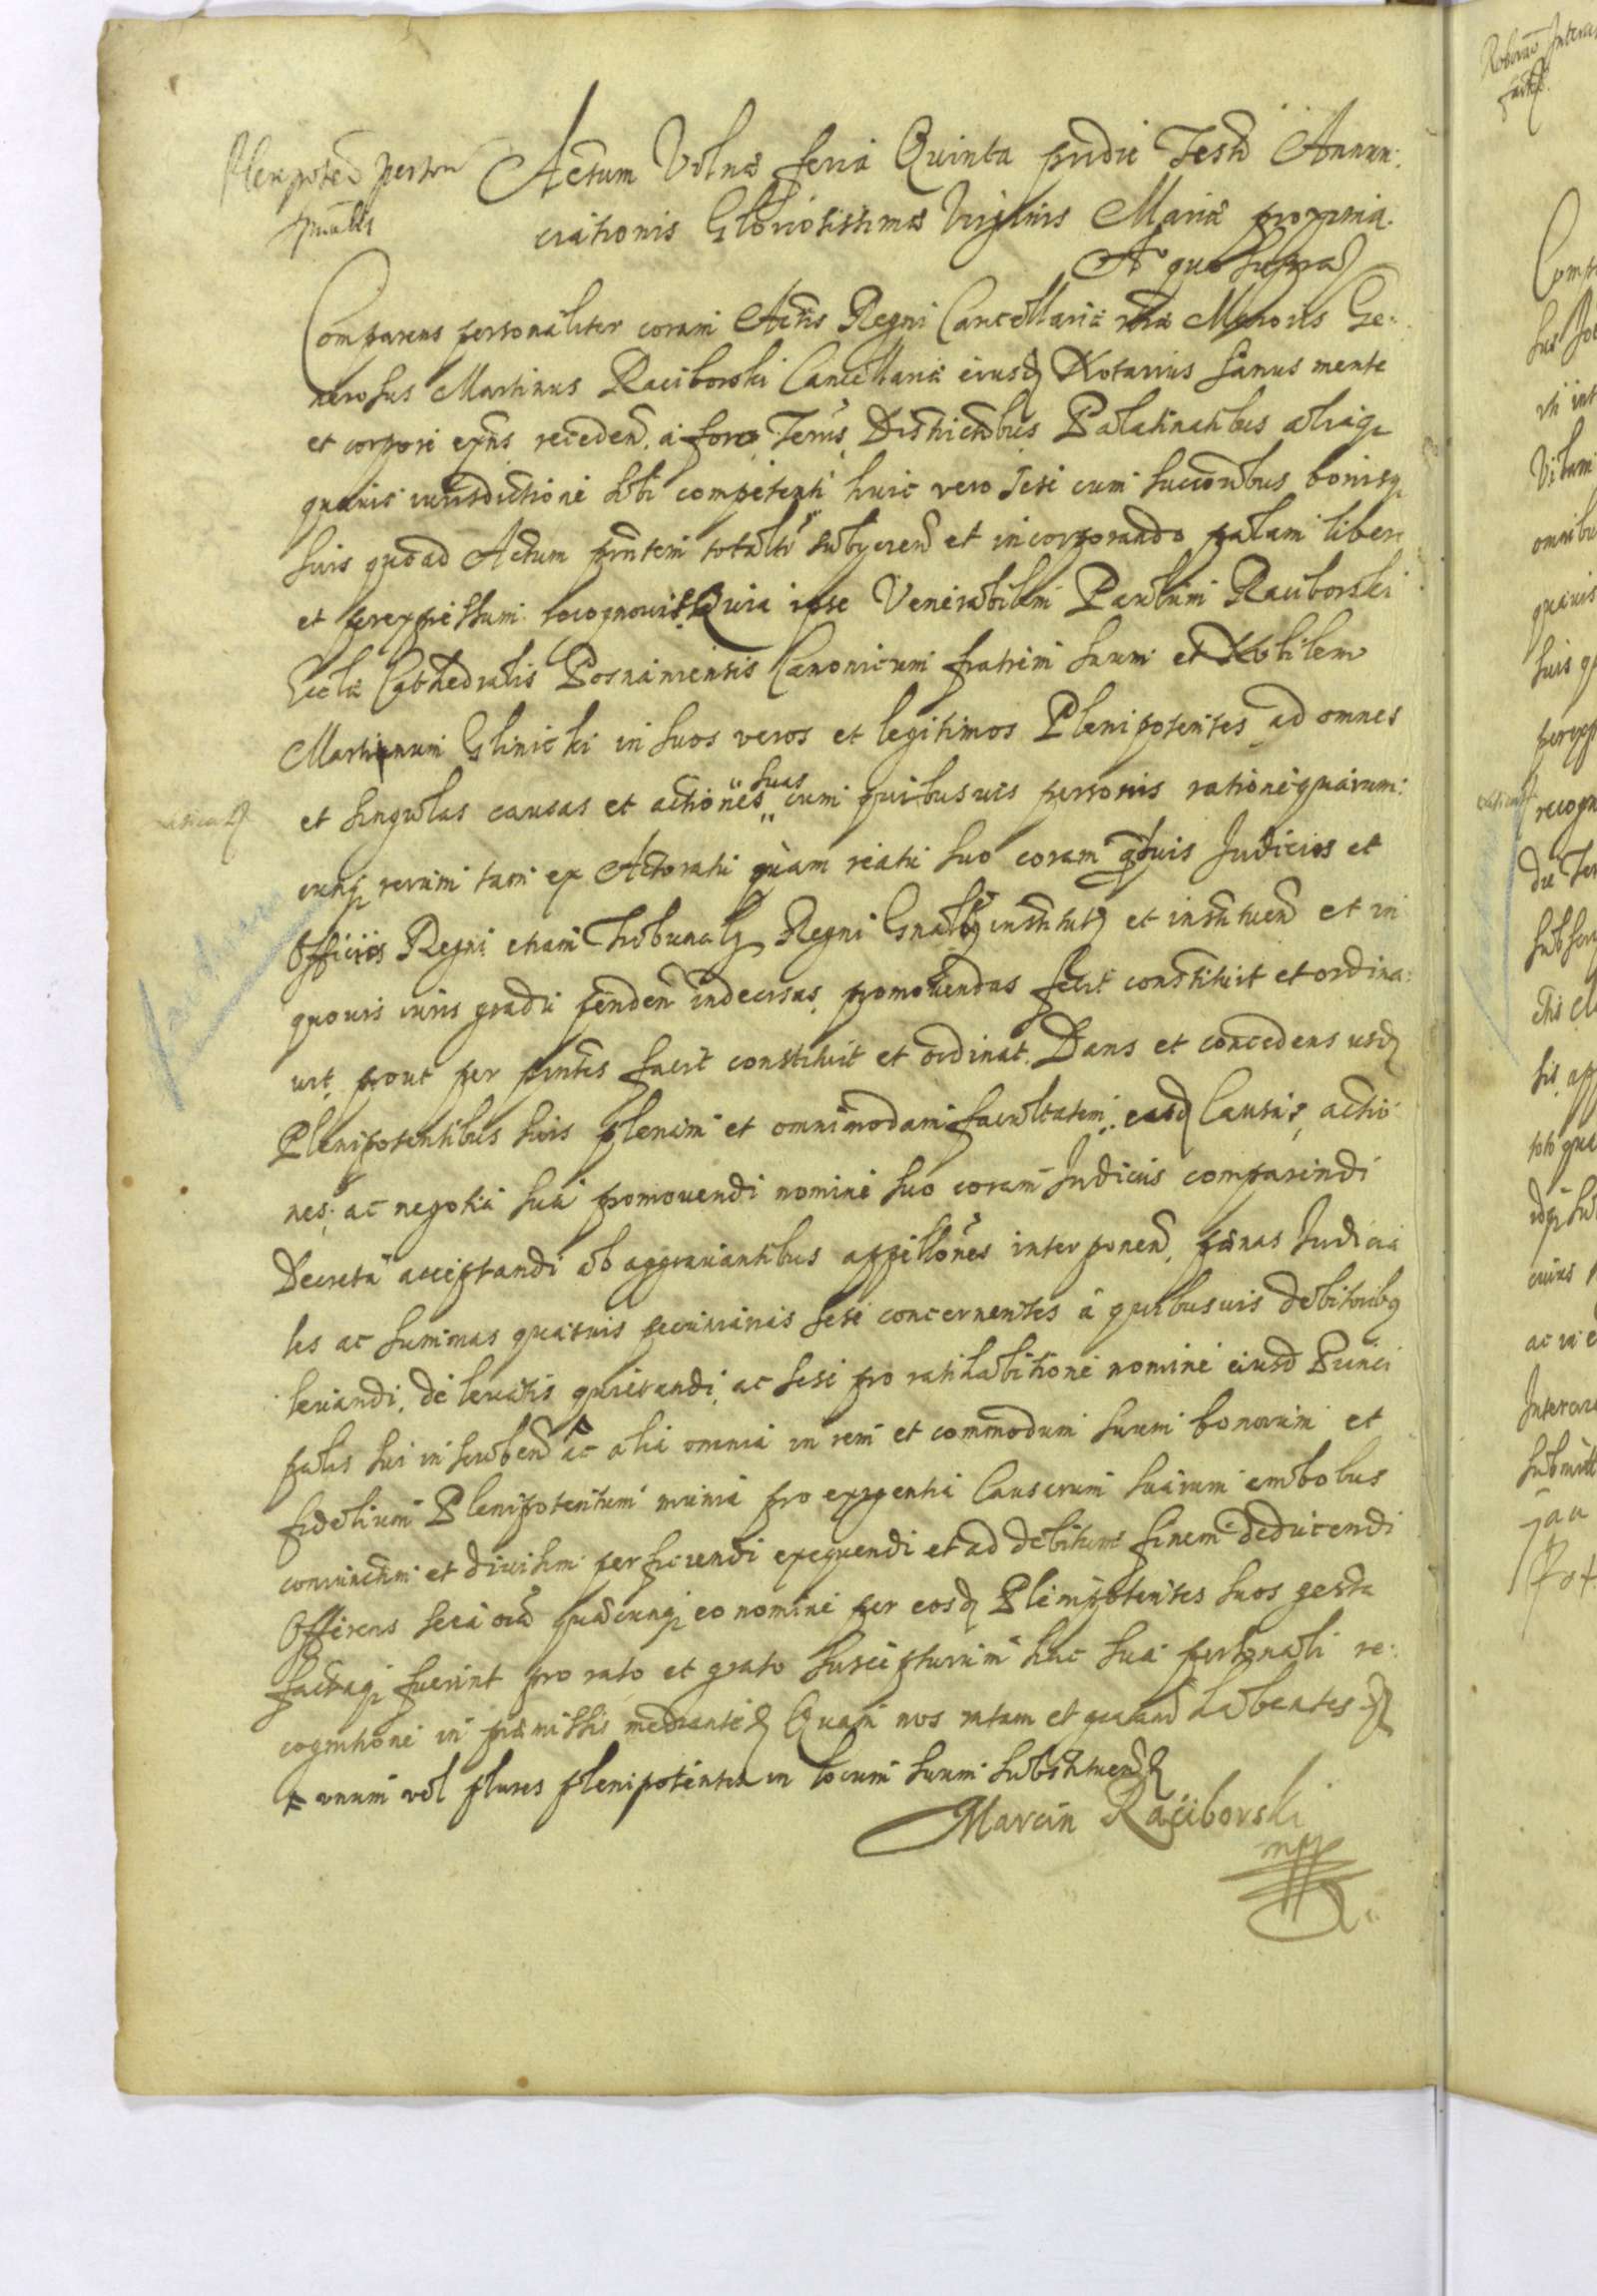 Plenipoten person
Actum Vilnae feria Quinta pridie Festi Annun:
ciationis Gloriosissimae Virginis Mariae proxima.
Aº quo supra
Comparens personaliter coram Actis Regni Cancellariae Maioris Ge:
nerosus Martinus Raciborski Cancellariae eiusd Notarius sanus mente
et corpore exns receden. a foro, Terris, Districtibus Palatinatibus aliaq
quavis iurisdictione sibi competenti huic vero sese cum succoribus bonisq
suis quoad Actum pntem totalr subycien et incorporando palam libere
et per expressum recognovit. Quia ipse Venerabilem Paulum Raciborski
Ecclae Cathedralis Posnaniensis Canonicum fratrem suum et Nobilem
Martinum Glinicki in suos veros et legitimos Plenipotentes ad omnes
et singulas causas et actiones suas cum quibusvis personis ratione quarum:
cunq rerum tam ex Actoratu quam reatu suo coram qbuis Judiciis et
Officiis Regni etiam Tribunalq Regni Gnalbq institut et instituen et in
quovis iuris gradu penden indecisas, promovendas fecit constituit et ordina:
vit, prout per pntes facit constituit et ordinat. Dans et concedens usd
Plenipotentibus suis plenam et omnimodam facultatem, easd Causas, actio
nes, ac negotia sua promovendi nomine suo coram Judiciis comparendi
Decreta acceptandi ab aggravantibus appellones interponen, paenas Judicia
les ac summas quasvis pecuniarias sese concernentes a quibusvis debitoribq
levandi, de levatis quietandi, ac sese pro ratihabitione nomine eiusd Princi
palis sui inscriben ac alia omnia in rem et commodum suum bonorum et
fidelium Plenipotentum munia pro exigentia Causarum suarum ambobus
coniunctim et divisim perficiendi exequendi et ad debitum finem deducendi
Offerens sese oia quaecunq eo nomine per eosd Plenipotentes suos gesta
factaq fuerint pro rato et grato suscepturum hac sua personali re:
cognitione in praemissis mediante Quam nos ratam et gratam habentes
unum vel plures plenipotentes in locum suum substituen
Marcin Raciborski
mpp